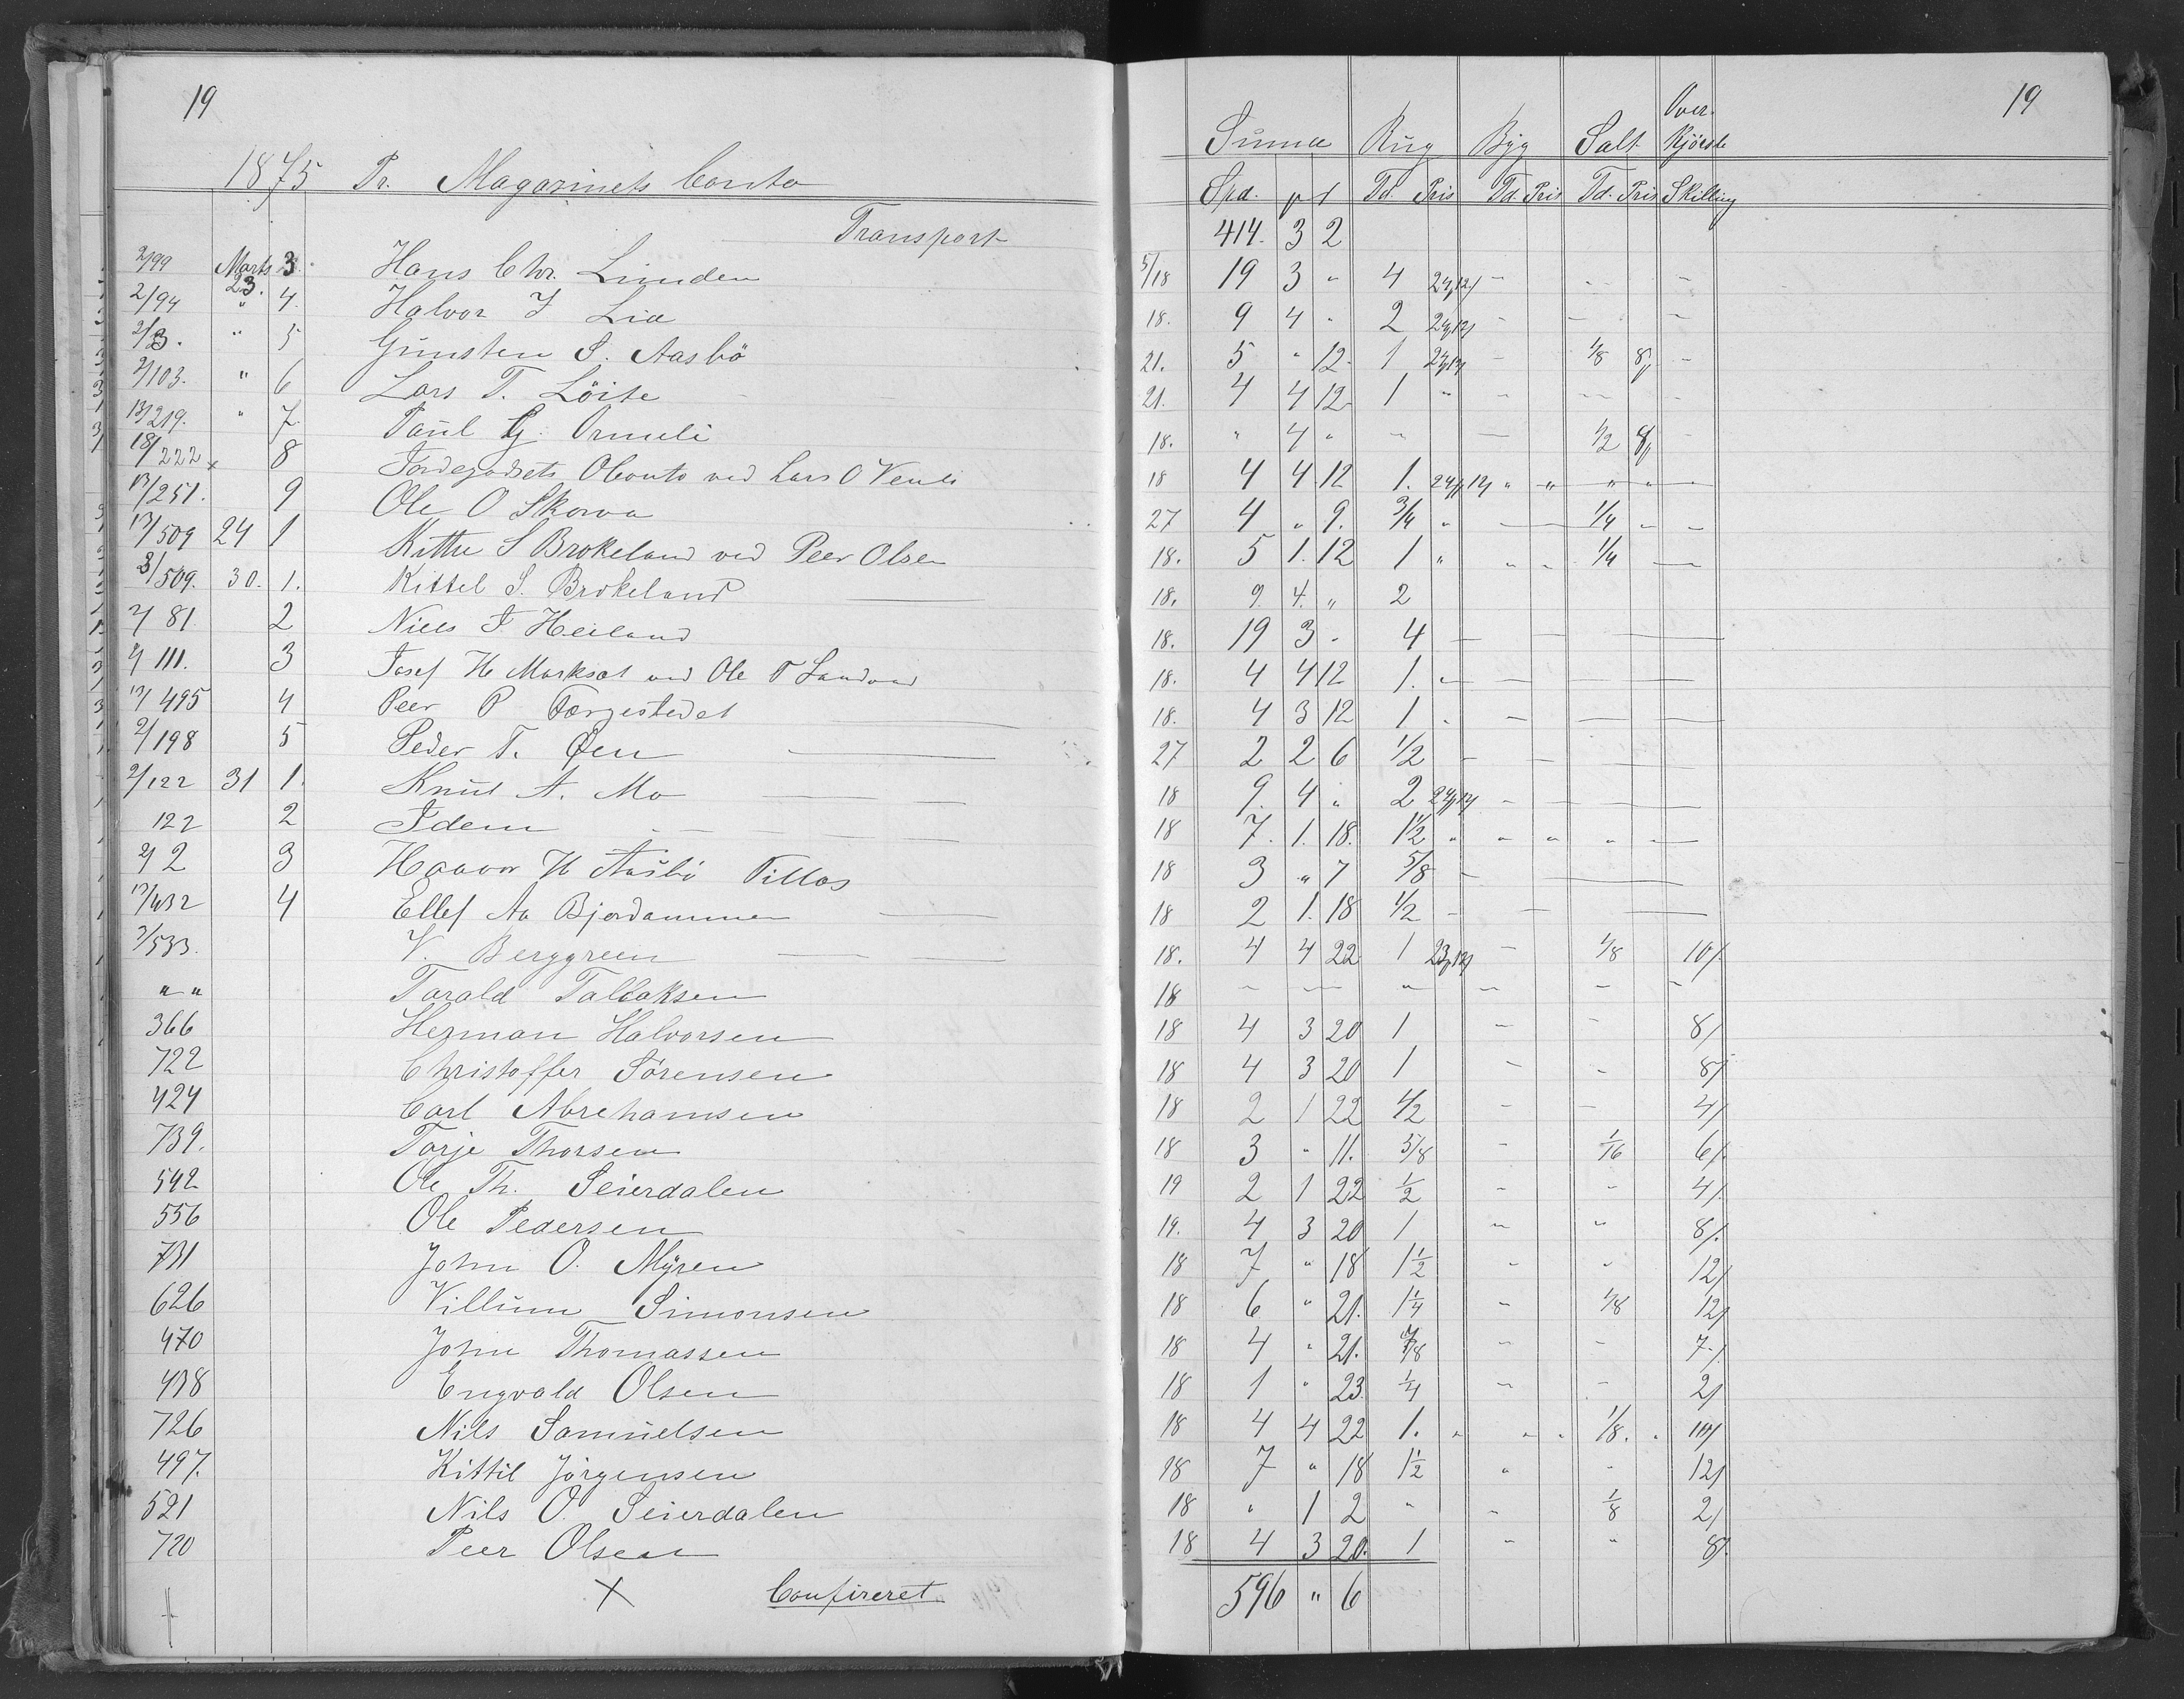 19
1875 Pr. Magazinets Conto
Transport
2/99 Marts 23. 3. Hans Chr. Linden
2/94 " 4. Halvor J Lia
2/3. " 5 Gunsten S. Aasbö
2/103. " 6 Lars T. Löite
13/219. " 7. Paul G. Ormeli
18/222 8 Jordegodsets Oconto ved Lars O Venli
17/251. 9 Ole O Skorva
17/509 24 1 Kittil S Brokeland ved Peer Olsen
3/509. 30. 1. Kittel S. Brokeland
2/81 2 Niels J Heiland
2/111. 3 Josef H Morksæt ved Ole T Landvad
17/495 4 Peer P Færgestedet
2/198 5 Peder T. Öen
2/122 31 1. Knut A. Mo
122 2 Idem
2/2 3 Haavor H Aasbö Pillos
17/432 4 Ellef Aa Bjordammen
3/533. V. Berggreen
" " Tarald Tallaksen
366 Herman Halvorsen
722 Christoffer Sörensen
424 Carl Abrehamsen
739. Torje Thorsen
542 Ole Th. Seierdalen
556 Ole Pedersen
731 John O. Myren
626 Villum Simonsen
470 John Thomassen
498 Engvald Olsen
726 Nils Samuelsen
497. Kittil Jörgensen
521 Nils O. Seierdalen
720 Peer Olsen
X Confireret
19
Summa Rug Byg Salt Over-Kjörste
Spd. Td. Pris Td. Pris Td. Pris Skilling
414. 3 2
5/18 19 3 " 4 24/12/ -
18. 9 4 " 2 24/12/ -
21. 5 " 12 1 24/12/ - 1/8 8/ -
21. 4 4 12 1 " -
18. " 4 " - - 1/2 8/ -
18 4 4 12 1. 24/12/ " " " "
27 4 " 9. 3/4 " - 1/4 " -
18. 5 1. 12 1 " " " 1/4 -
18. 9. 4. " 2
18. 19 3 - 4 -
18. 4 4 12 1. -
18. 4 3 12 1 . -
27 2 2 6 1/2 -
18 9. 4 " 2 24/12/ -
18 7. 1. 18. 1 1/2 " " " " -
18 3 " 7 5/8 -
18 2 1. 18 1/2 -
18. 4 4 22 1 23/12/ - 1/8 10/
18 - - - - - -
18 4 3 20 1 - - 8/
18 4 3 20 1 - - 8/
18 2 1 22 1/2 - - 4/
18 3 " 11. 5/8 - 1/16 6/
19 2 1 22 1/2 - - 4/
19. 4 3 20 1 - " 8/.
18 7 " 18 1 1/2 - - 12/
18 6 " 21. 1 1/4 - 1/8 12/
18 4 " 21. 7/8 - - 7/.
18 1 " 23. 1/4 - - 2/
18 4 4 22 1. " " . 1/8. . 10/
18 7 " 18 1 1/2 " - 12/
18 " 1 2 " - 1/8 2/
18 4 3 20. 1 " " 8/.
596 " 6